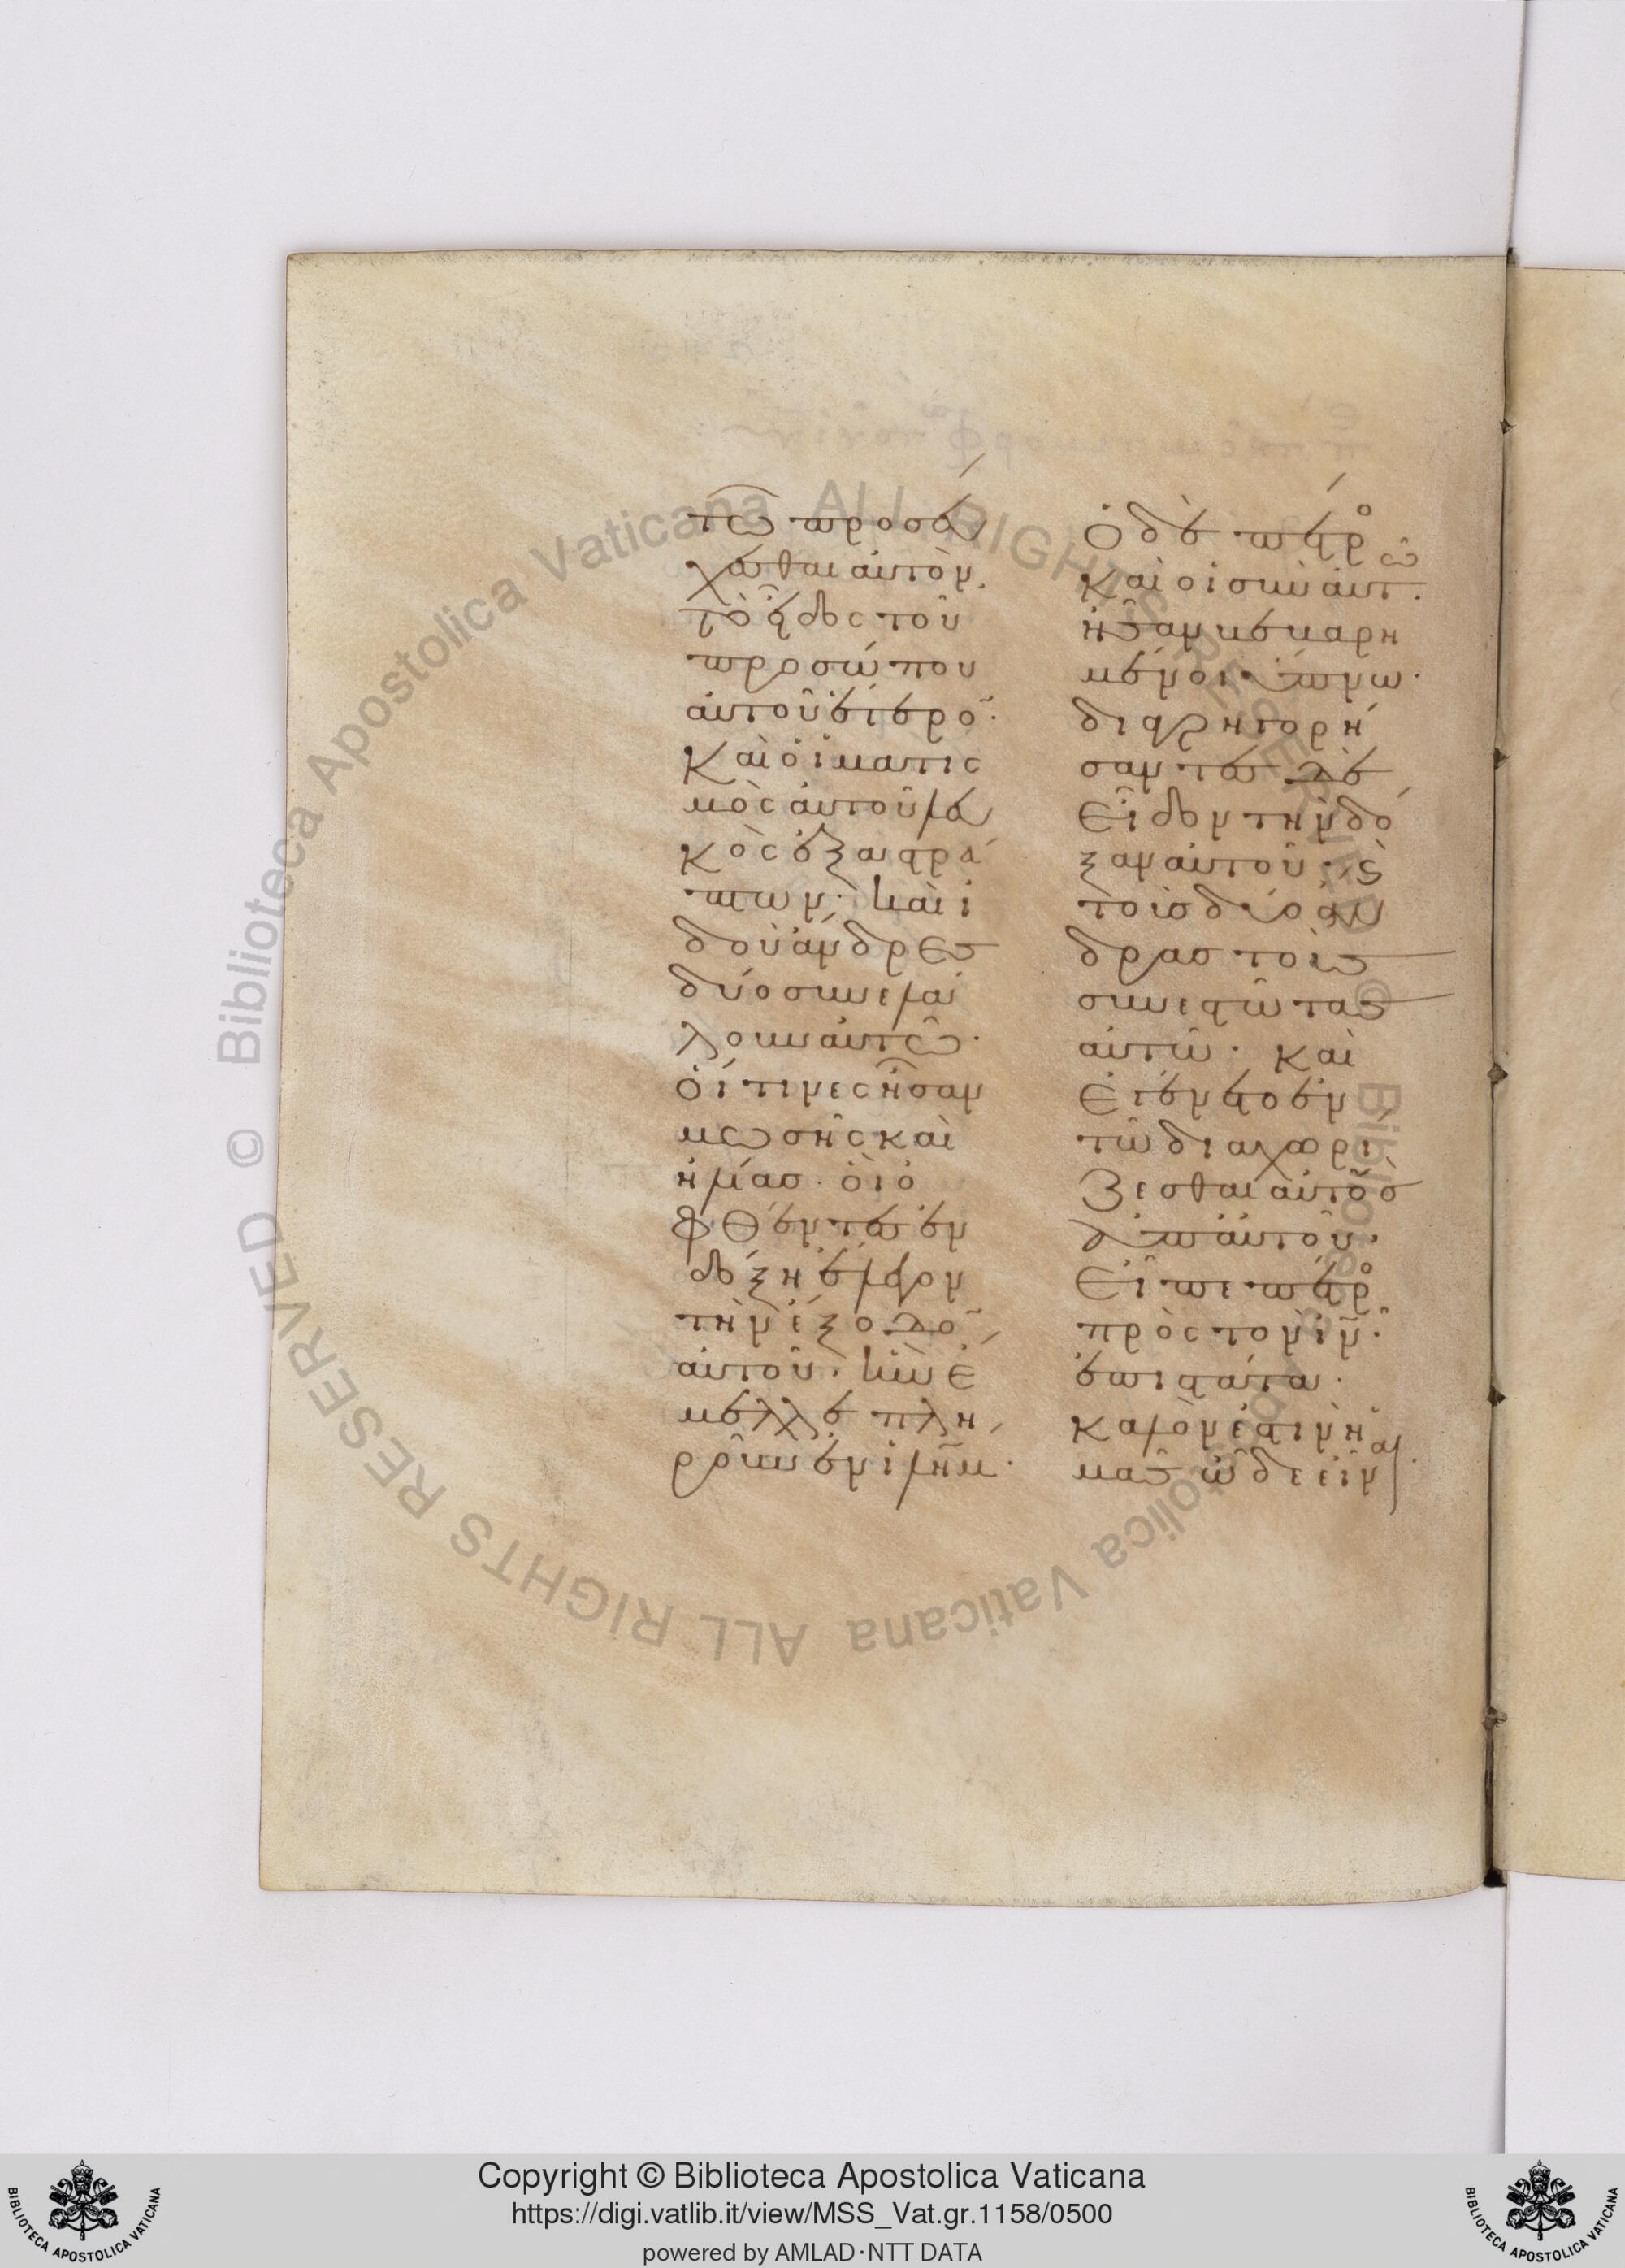 τῶ προσεύ
χεσθαι αὐτὸν.
τὸ εἶδος τοῦ
προσώπου
αὐτοῦ ἕτερο͂·
Καὶ ὁ ἱματις
μὸς αὐτοῦ λευ
κὸς ἐξαστρά
πτων· καὶ ἰ
δοὺ ἄνδρες
δύο συνελά
λουν αὐτῶ·
Οἵτινες ἦσαν
μωσῆς καὶ
ἠλίας· οἳ ὀ
φθέντες ἐν
δόξη ἔλεγον
τὴν ἔξοδο͂
αὐτοῦ· ἣν ἔ
μελλε πλη
ροῦν ἐν ἰλῆμ·
Ὁ δὲ πέτρο
καὶ οἱ σὺν αὐτῶ.
ἦσαν βεβαρη
μένοι ὕπνω·
διαγρηγορή
σαντες δὲ
Εἶδον τὴν δό
ξαν αὐτοῦ· ϗ
τοὺσ δύο ἄν
δρασ τοὺσ
συνεστῶτασ
αὐτῶ· καὶ
Ἐγένετο ἐν
τῶ διαχωρί
ζεσθαι αὐτοὺσ
ἀπ αὐτοῦ·
Εἶπε πέτρο
πρὸς τὸν ἰν͂·
ἐπιστάτα·
Καλόν ἐστιν ἡ
μᾶσ ὧδε εἶναι·
Copyright © Biblioteca Apostolica Vaticana
https://digi.vatlib.it/view/MSS_Vat.gr.1158/0500
powered by AMLAD·NTT DATA
BIBLIOTECA APOSTOLICA VATICANA
BIBLIOTECA APOSTOLICA VATICANA
© Biblioteca Apostolica Vaticana ALL RIGHTS RESERVED
© Biblioteca Apostolica Vaticana ALL RIGHTS RESERVED